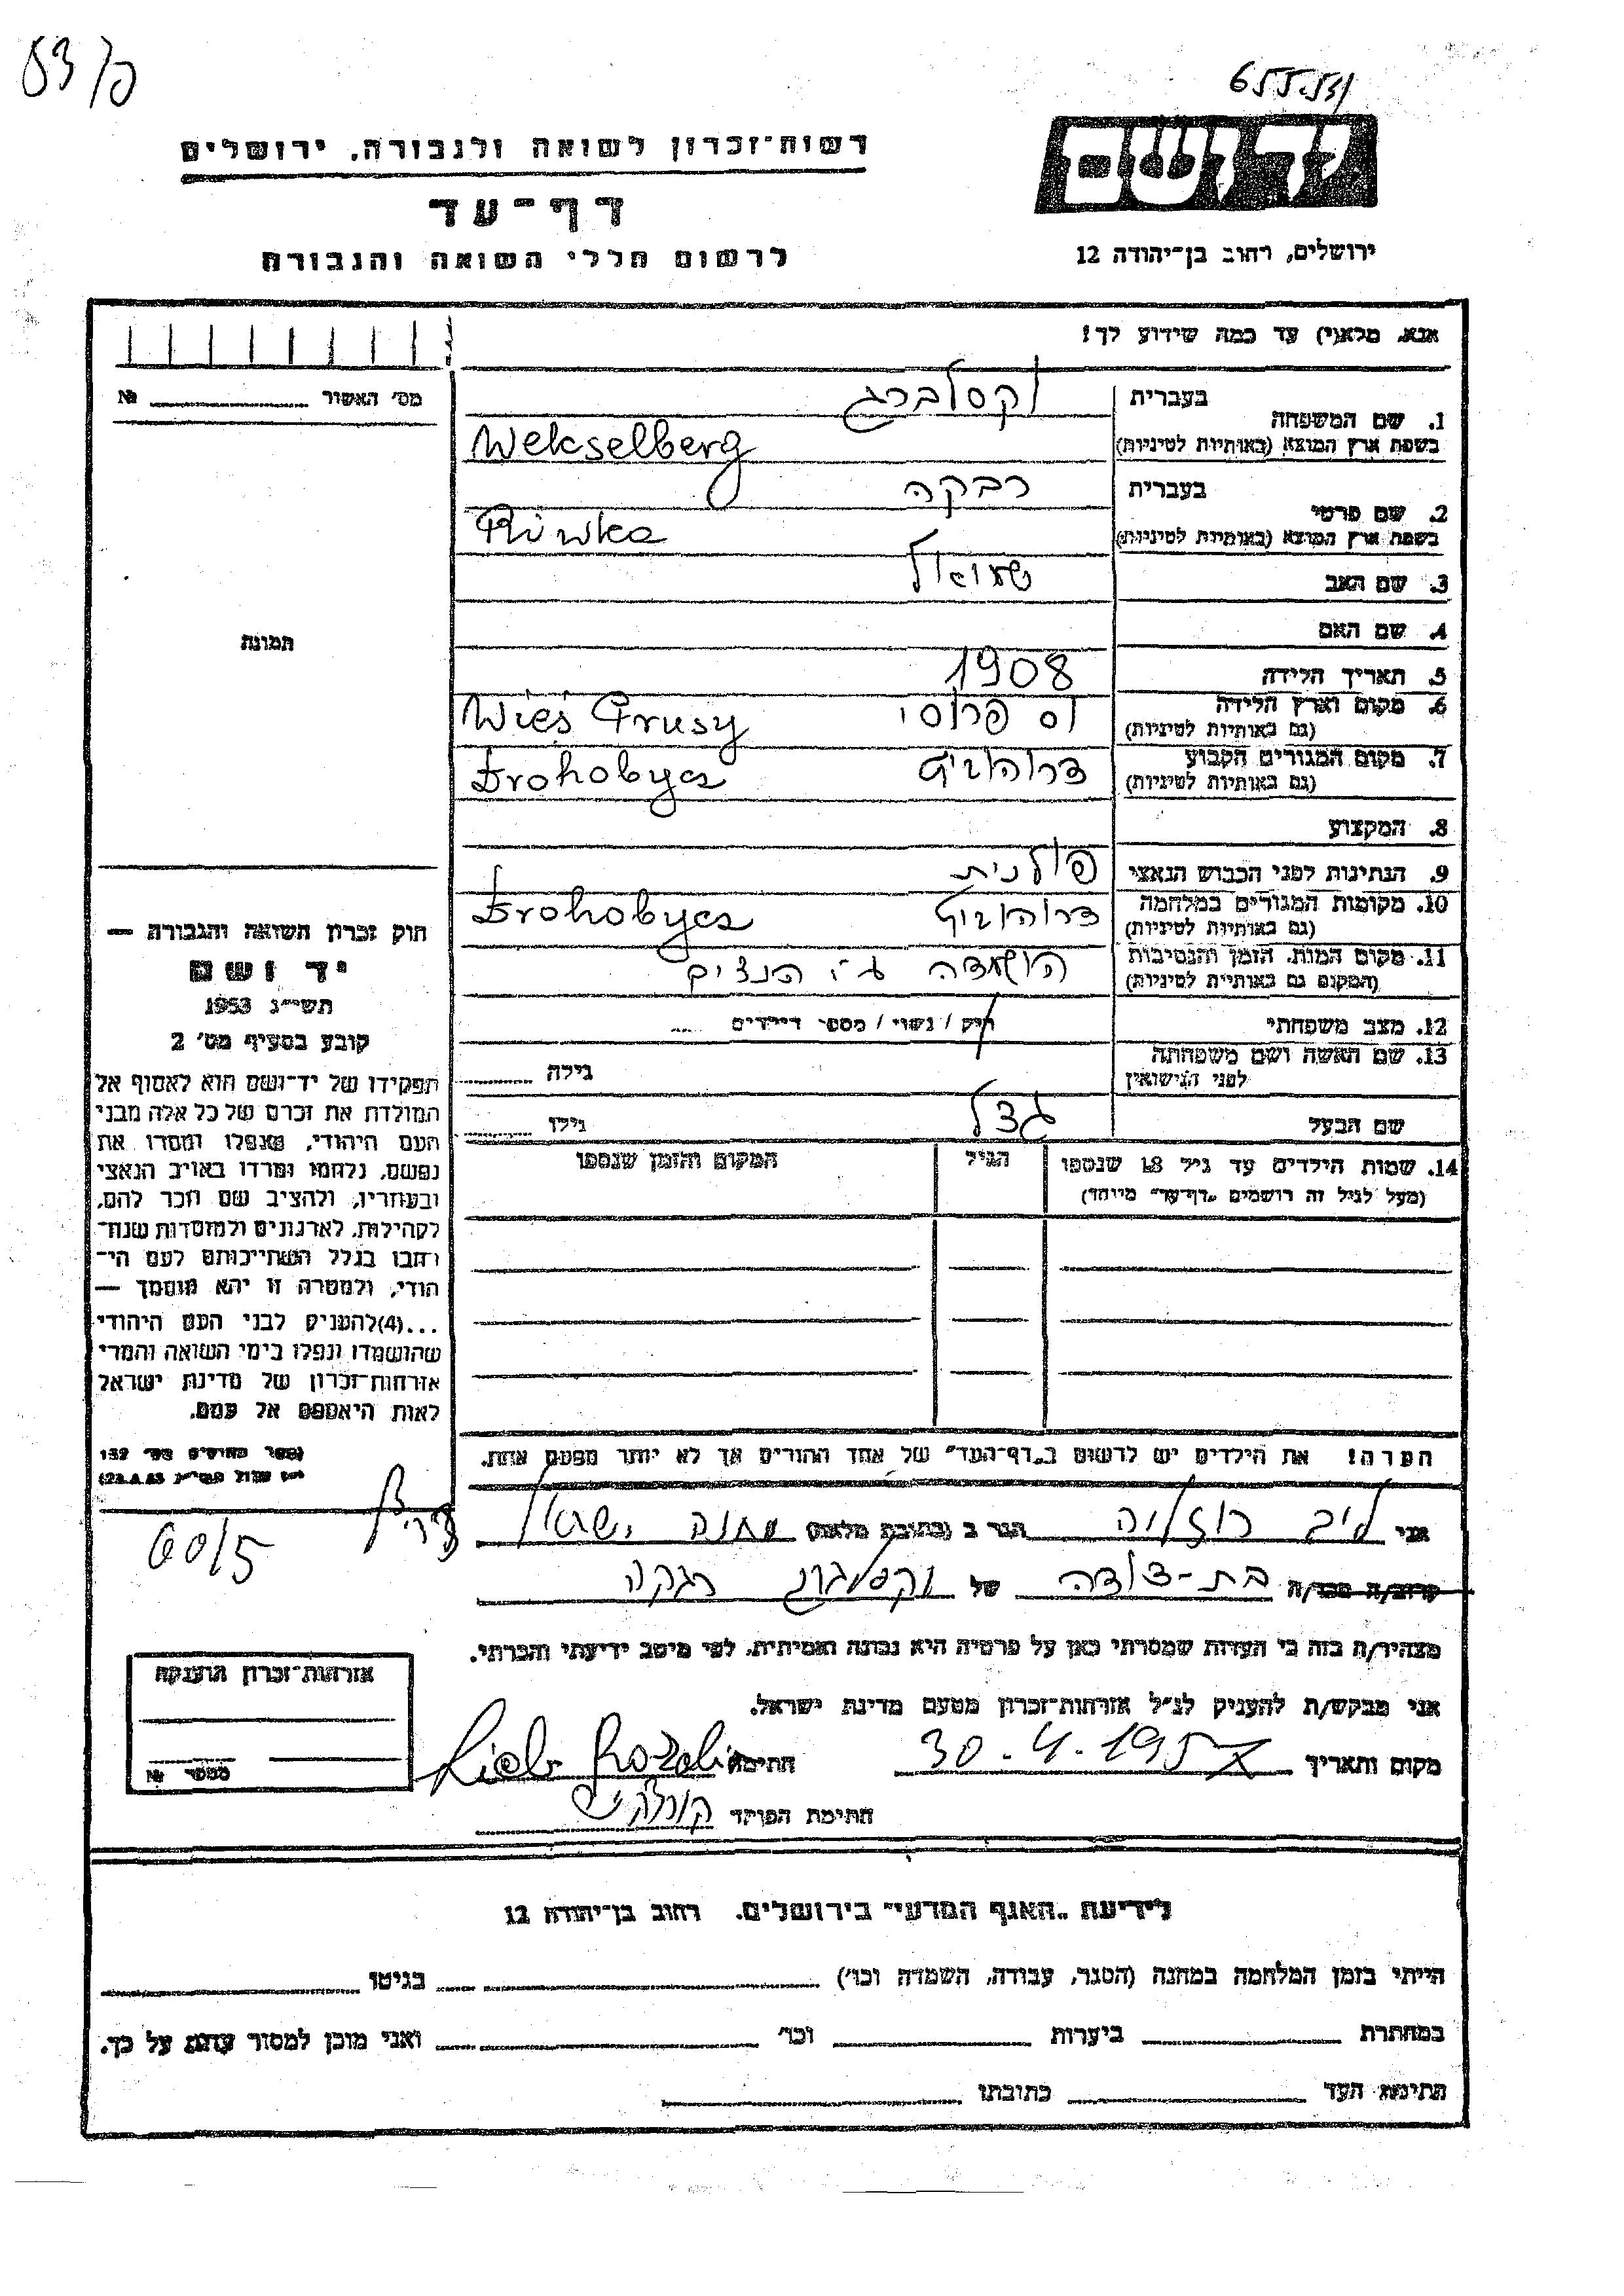 655.531
רשות־זכרון לשואה ולגבורה. ירושלים
יד ושם
דף־עד
לרשום חללי השואה והגבורה
ירושלים, רחוב בן־יהודה 12
אנא, מלא(י) עד כמה שידוע לך!
מס׳ האשור № 
1. שם המשפחה
בעברית
וקסלברג
בשפת ארץ המוצא (באותיות לטיניות)
Wekselberg
2. שם פרטי
בעברית
רבקה
בשפת ארץ המוצא (באותיות לטיניות)
Riwka
3. שם האב
שמואל
4. שם האם
5. תאריך הלידה
1908
6. מקום וארץ הלידה
(גם באותיות לטיניות)
וס פרוסי Wieś Prusy
7. מקום המגורים הקבוע
(גם באותיות לטיניות)
דרוהוביץ Drohobycz
8. המקצוע
9. הנתינות לפני הכבוש הנאצי
פולנית
10. מקומות המגורים במלחמה
(גם באותיות לטיניות)
דרוהוביץ Drohobycz
11. מקום המות, הזמן והנסיבות
(המקום גם באותיות לטיניות)
הושמדה ע״י הנצים
12. מצב משפחתי
רוק / נשוי / מספר הילדים
13. שם האשה ושם משפחתה
לפני הנישואין
גילה
שם הבעל
גצל
גילו
14. שמות הילדים עד גיל 18 שנספו
(מעל לגיל זה רושמים "דף־עד" מיוחד)
הגיל
המקום והזמן שנספו
תמונה
חוק זכרון השואה והגבורה —
יד ושם
תשי״ג 1953
קובע בסעיף מס׳ 2
תפקידו של יד־ושם הוא לאסוף אל
המולדת את זכרם של כל אלה מבני
העם היהודי, שנפלו ומסרו את
נפשם, נלחמו ומרדו באויב הנאצי
ובעוזריו, ולהציב שם וזכר להם,
לקהילות, לארגונים ולמוסדות שנח־
רבו בגלל השתייכותם לעם הי־
הודי, ולמטרה זו יהא מוסמך —
...(4) להעניק לבני העם היהודי
שהושמדו ונפלו בימי השואה והמרי
אזרחות־זכרון של מדינת ישראל
לאות היאספם אל עמם.
(ספר החוקים מס׳ 132
60/5
הערה! את הילדים יש לרשום ב"דף־העד" של אחד ההורים אך לא יותר מפעם אחת.
אני ליב רוזליה הגר ב (כתובת מלאה) מחנה ישראל
קרוב/ה מכר/ה בת-דודה של וקסלברג רבקה
מצהיר/ה בזה כי העדות שמסרתי כאן על פרטיה היא נכונה ואמיתית, לפי מיטב ידיעתי והכרתי.
אני מבקש/ת להעניק לנ״ל אזרחות־זכרון מטעם מדינת ישראל.
מקום ותאריך 30.4.1957 חתימה Lieb Rozalia
חתימת הפוקד
אזרחות־זכרון הוענקה
מספר №
לידיעת "האגף המדעי" בירושלים. רחוב בן־יהודה 12
הייתי בזמן המלחמה במחנה (הסגר, עבודה, השמדה וכו׳) בגיטו
במחתרת ביערות וכו׳ ואני מוכן למסור עדות על כך.
חתימת העד כתובתו